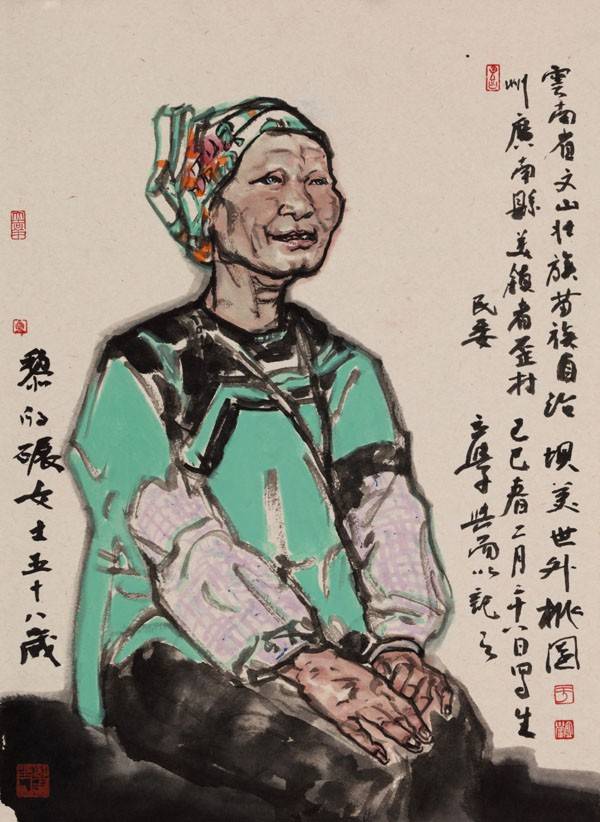 雲南省文山壯族苗族自治 垻美世外桃園
州廣南縣美鎮者歪村 己巳春二月二十八日写生
民委 以記之
黎的碾女士五十八歲